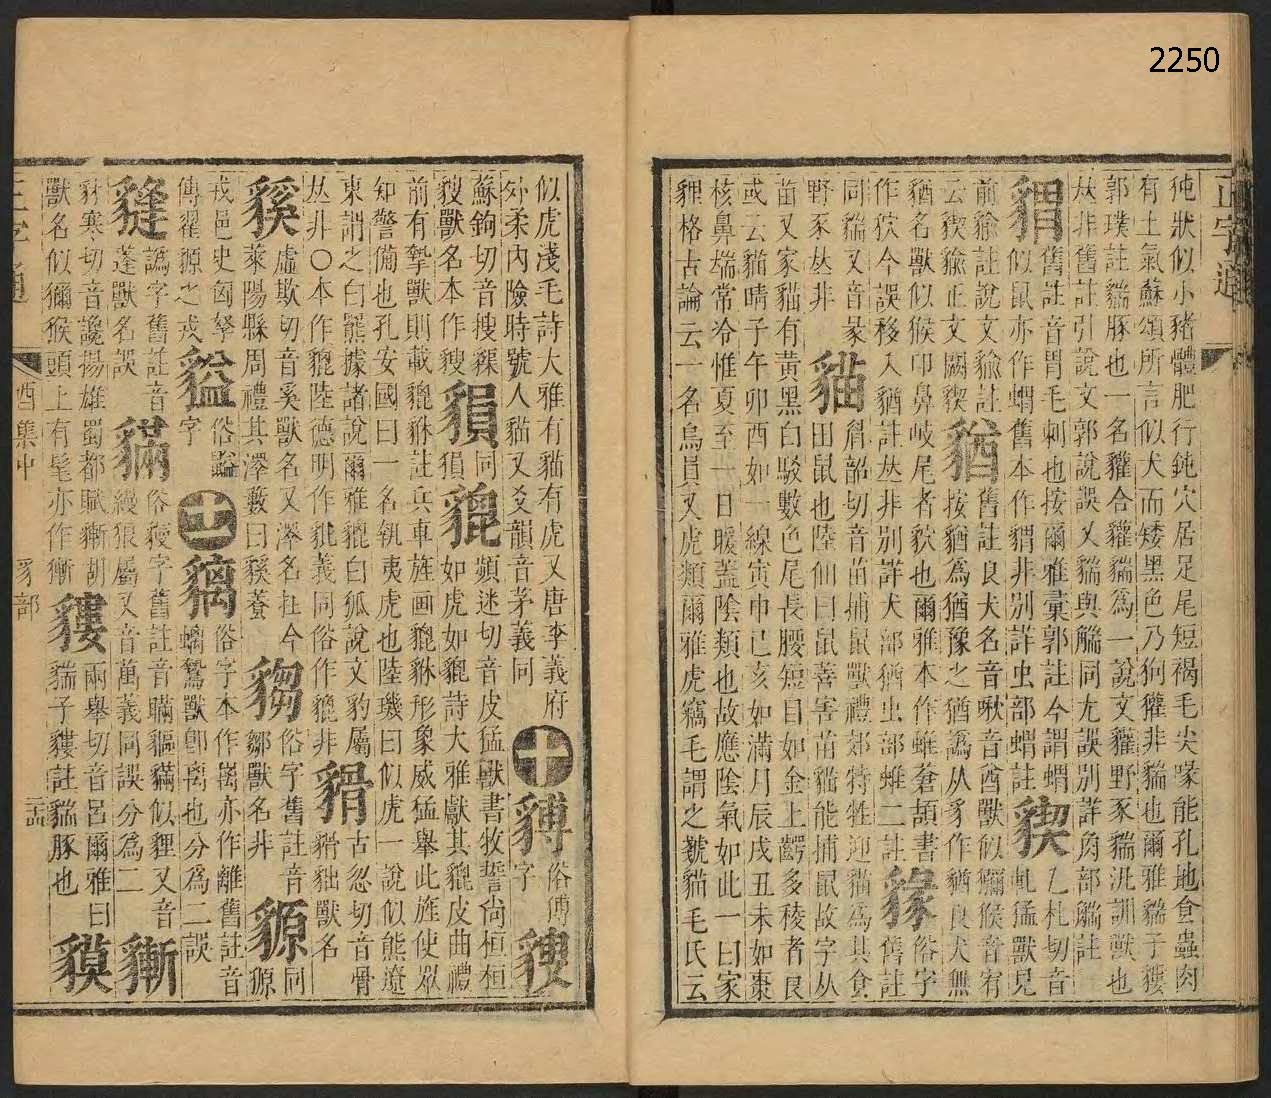 2250
正字通
狀似小豬體肥行鈍穴居足尾短褐毛尖喙能孔地食蟲肉
有土氣蘇頌所言似犬而矮黑色乃狗貛非貒也爾雅貒子貗
郭璞註貒豚也一名貛合貛貒為一說文貛野豕貒汎訓獸也
𠀤非舊註引說文郭說誤又貒與觿同尤誤別詳角部觿註
舊註音胃毛刺也按爾雅彙郭註今謂蝟
似鼠亦作蝟舊本作猬非別詳虫部蝟註
乙札切音
軋猛獸見
前貐註說文貐註
云猰貐正文闕猰
猶
舊註良犬名音啾音酉獸似獼猴音宥
按猶為猶豫之猶譌从豸作猶良犬無
猶名獸似猴卬鼻岐尾者狖也爾雅本作蜼蒼頡書
作狖今誤移入猶註𠀤非別詳犬部猶虫部蜼二註
俗字
舊註
同貒又音彖
野豕𠀤非
貓
眉韶切音苗捕鼠獸禮郊特牲迎貓為其食
田鼠也陸佃曰鼠善害苗貓能捕鼠故字从
苗又家貓有黃黑白駁數色尾長腰短目如金上齶多稜者良
或云貓睛子午卯酉如一線寅申巳亥如滿月辰戌丑未如棗
核鼻端常冷惟夏至一日暖蓋陰類也故應陰氣如此一曰家
貍格古論云一名烏員又虎類爾雅虎竊毛謂之虦貓毛氏云
似虎淺毛詩大雅有貓有虎又唐李義府
外柔內險時號人貓又爻韻音茅義同
十
俗傅
字
蘇鉤切音搜
獸名本作
同
猏
貔
頻迷切音皮猛獸書牧誓尚桓桓
如虎如貔詩大雅獻其貔皮曲禮
前有摯獸則載貔貅註兵車旌画貔貅形象威猛舉此旌使眾
知警備也孔安國曰一名執夷虎也陸璣曰似虎一說似熊遼
東謂之白羆據諸說爾雅貔白狐說文豹屬
𠀤非○本作貔陸德明作豼義同俗作非
古忽切音骨
貀獸名
貕
虛欺切音奚獸名又澤名在今
萊陽縣周禮其澤藪曰貕養
俗字舊註音
鄒獸名非
豲
同
豲
戎邑史匈奴
傳翟豲之戎
俗
字
十一
俗字本作离亦作離舊註音
螭鷙獸卽离也分為二誤
譌字舊註音
蓬獸名誤
俗獌字舊註音瞞貙似貍又音
縵狼屬又音萬義同誤分為二
豺寒切音讒揚雄蜀都賦獑胡
獸名似獼猴頭上有髦亦作獑
貗
兩舉切音呂爾雅曰
貒子貗註貒豚也
貘
酉集中
豸部